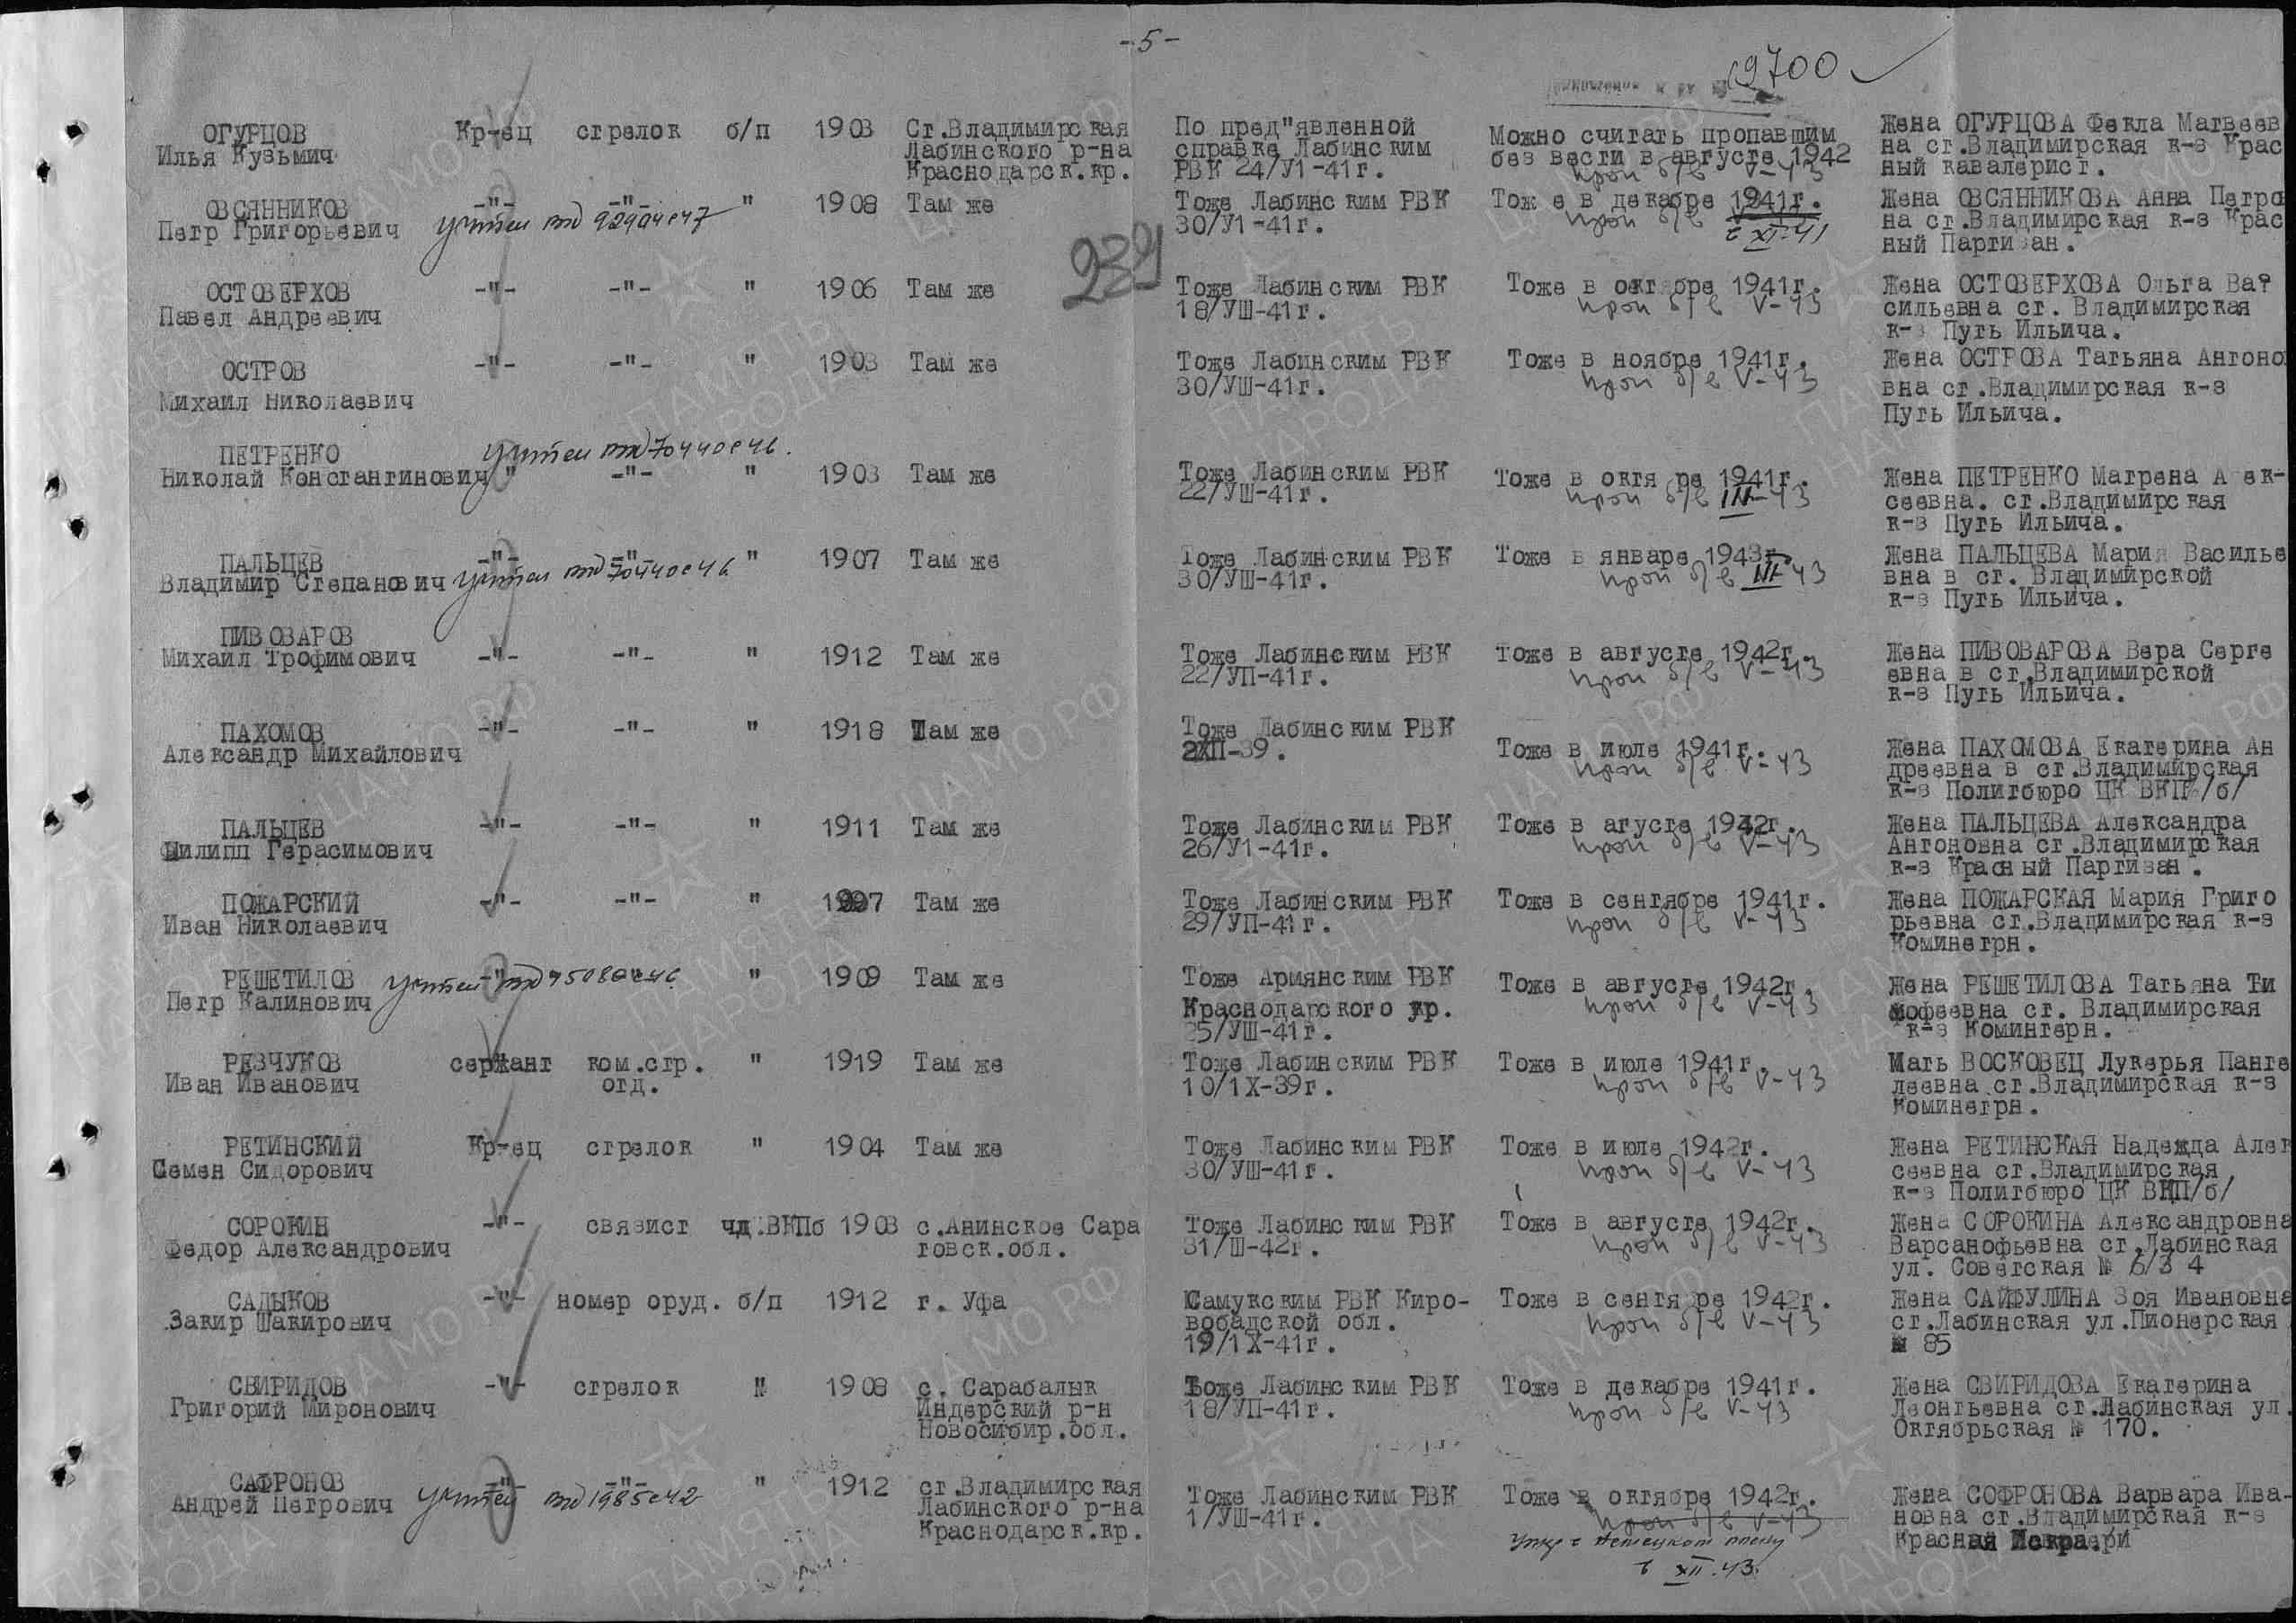 -5-
19700
ОГУРЦОВ Кр-ец стрелок б/п 1903 Ст.Владимирская По пред"явленной Можно считать пропавшим Жена ОГУРЦОВА Фекла Матвеев
Илья Кузьмич Лабинского р-на справке Лабинским без вести в августе 1942 на ст.Владимирская к-з Крас
Краснодарск.кр. РВК 24/У1-41г. проп б/в V-43 ный кавалерист.
ОВСЯННИКОВ -"- -"- " 1908 Там же Тоже Лабинским РВК Тож е в декабре 1941г. Жена ОВСЯННИКОВА Анна Петров
Петр Григорьевич учтен 92904с47 30/У1-41г. проп б/в в XI-41 на ст.Владимирская к-з Крас
ный Партизан.
239
ОСТОВЕРХОВ -"- -"- " 1906 Там же Тоже Лабинским РВК Тоже в октябре 1941г. Жена ОСТОВЕРХОВА Ольга Ва?
Павел Андреевич 18/УШ-41г. проп б/в V-43 сильевна ст. Владимирская
к-з Путь Ильича.
ОСТРОВ -"- -"- " 1903 Там же Тоже Лабинским РВК Тоже в ноябре 1941г. Жена ОСТРОВА Татьяна Антоно
Михаил Николаевич 30/УШ-41г. проп б/в V-43 вна ст.Владимирская к-з
Путь Ильича.
ПЕТРЕНКО учтен 70440с46.
Николай Константинович " -"- " 1903 Там же Тоже Лабинским РВК Тоже в октя ре 1941г. Жена ПЕТРЕНКО Матрена А ек-
22/УШ-41г. проп б/в III-43 сеевна. ст.Владимирская
к-з Путь Ильича.
ПАЛЬЦЕВ -"- -"- " 1907 Там же Тоже Лабинским РВК Тоже в январе 1943г. Жена ПАЛЬЦЕВА Мария Василье
Владимир Степанович учтен 70440с46 30/УШ-41г. проп б/в III-43 вна в ст. Владимирской
к-з Путь Ильича.
ПИВОВАРОВ
Михаил Трофимович -"- -"- " 1912 Там же Тоже Лабинским РВК Тоже в августе 1942г. Жена ПИВОВАРОВА Вера Серге
22/УП-41г. проп б/в V-43 евна в ст.Владимирской
к-з Путь Ильича.
ПАХОМОВ -"- -"- " 1918 Там же Тоже Лабинским РВК
Александр Михайлович 2ХП-39. Тоже в июле 1941г. Жена ПАХОМОВА Екатерина Ан
проп б/в V-43 дреевна в ст.Владимирская
к-з Политбюро ЦК ВКП/б/
ПАЛЬЦЕВ -"- -"- " 1911 Там же Тоже Лабинским РВК Тоже в агусте 1942г. Жена ПАЛЬЦЕВА Александра
Филипп Герасимович 26/У1-41г. проп б/в V-43 Антоновна ст.Владимирская
к-з Красный Партизан.
ПОЖАРСКИЙ -"- -"- " 1907 Там же Тоже Лабинским РВК Тоже в сентябре 1941г. Жена ПОЖАРСКАЯ Мария Григо
Иван Николаевич 29/УП-41г. проп б/в V-43 рьевна ст.Владимирская к-з
Коминетрн.
РЕШЕТИЛОВ учтен 95080с46 " 1909 Там же Тоже Армянским РВК Тоже в августе 1942г. Жена РЕШЕТИЛОВА Татьяна Ти
Петр Калинович Краснодарского кр. проп б/в V-43 мофеевна ст. Владимирская
25/УШ-41г. к-з Коминтерн.
РЕЗЧУКОВ сержант ком.стр. " 1919 Там же Тоже Лабинским РВК Тоже в июле 1941г. Мать ВОСКОВЕЦ Лукерья Панте
Иван Иванович отд. 10/1Х-39г. проп б/в V-43 леевна ст.Владимирская к-з
Коминетрн.
РЕТИНСКИЙ Кр-ец стрелок " 1904 Там же Тоже Лабинским РВК Тоже в июле 1942г. Жена РЕТИНСКАЯ Надежда Алек
Семен Сидорович 30/УШ-41г. проп б/в V-43 сеевна ст.Владимирская
к-з Политбюро ЦК ВКП/б/
СОРОКИН -"- связист чд.ВКПб 1903 с.Анинское Сара Тоже Лабинским РВК Тоже в августе 1942г. Жена СОРОКИНА Александровна
Федор Александрович товск.обл. 31/Ш-42г. проп б/в V-43 Варсанофьевна ст.Лабинская
ул. Советская № 6/3 4
САДЫКОВ -"- номер оруд. б/п 1912 г. Уфа Самукским РВК Киро- Тоже в сентя ре 1942г. Жена САЙФУЛИНА Зоя Ивановна
Закир Шакирович вобадской обл. проп б/в V-43 ст.Лабинская ул.Пионерская
19/1Х-41г. № 85
СВИРИДОВ -"- стрелок " 1908 с. Сарабалык Тоже Лабинским РВК Тоже в декабре 1941г. Жена СВИРИДОВА Екатерина
Григорий Миронович Индерский р-н 18/УП-41г. проп б/в V-43 Леонтьевна ст.Лабинская ул.
Новосибир.обл. Октябрьская № 170.
САФРОНОВ -"- -"- " 1912 ст.Владимирская Тоже Лабинским РВК Тоже в октябре 1942г. Жена СОФРОНОВА Варвара Ива-
Андрей Петрович учтен 1985с42 Лабинского р-на 1/УШ-41г. проп б/в V-43 новна ст.Владимирская к-з
Краснодарск.кр. умер в немецком плену Красная Искра.
в XII.43.